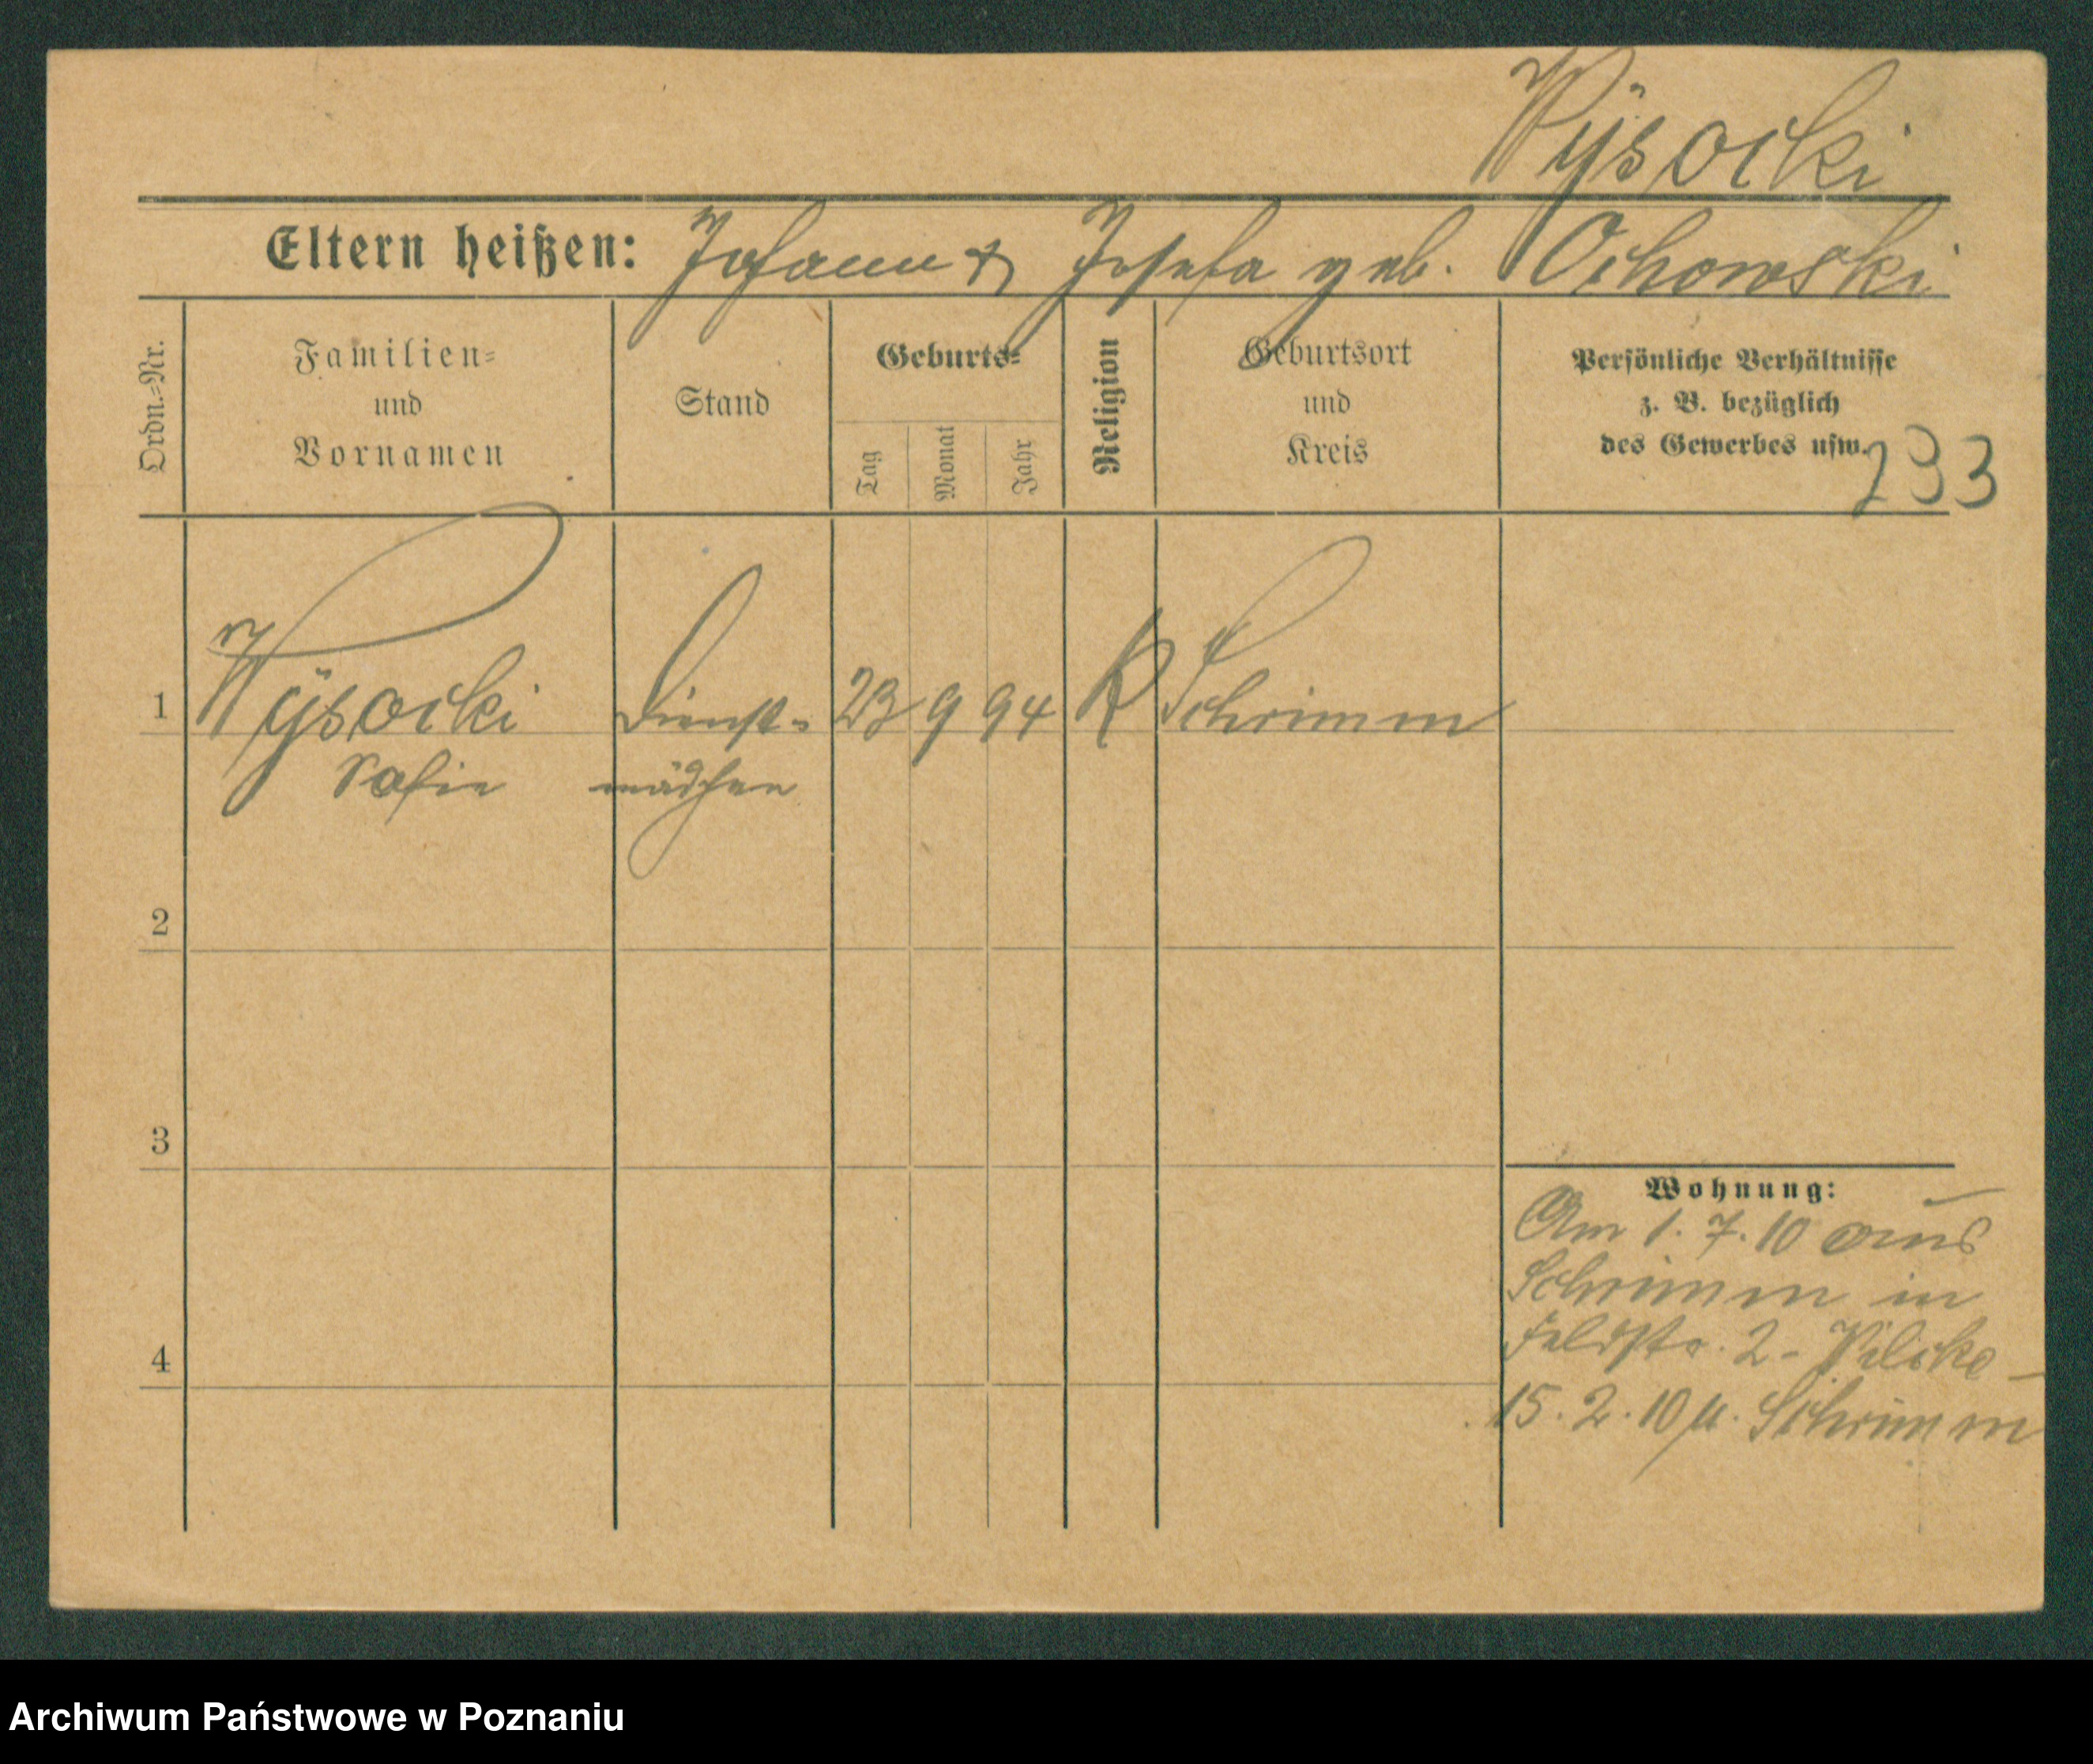 Wÿsocki
Eltern heißen: Johann & Josefa geb. Ochowski
Ordn.=Nr.
Familien=
und
Vornamen
Stand
Geburts=
Tag
Monat
Jahr
Religion
Geburtsort
und
Kreis
Persönliche Verhältnisse
z. B. bezüglich
des Gewerbes usw.
293
1 Wÿsocki Dienst= 23 9 94 K Schrimm
Sofie mädchen
2
3
4
Wohnung:
Am 1. 7. 10 aus
Schrimm in
Feldstr. 2 -
15. 2. 10 Schrimm
Archiwum Państwowe w Poznaniu